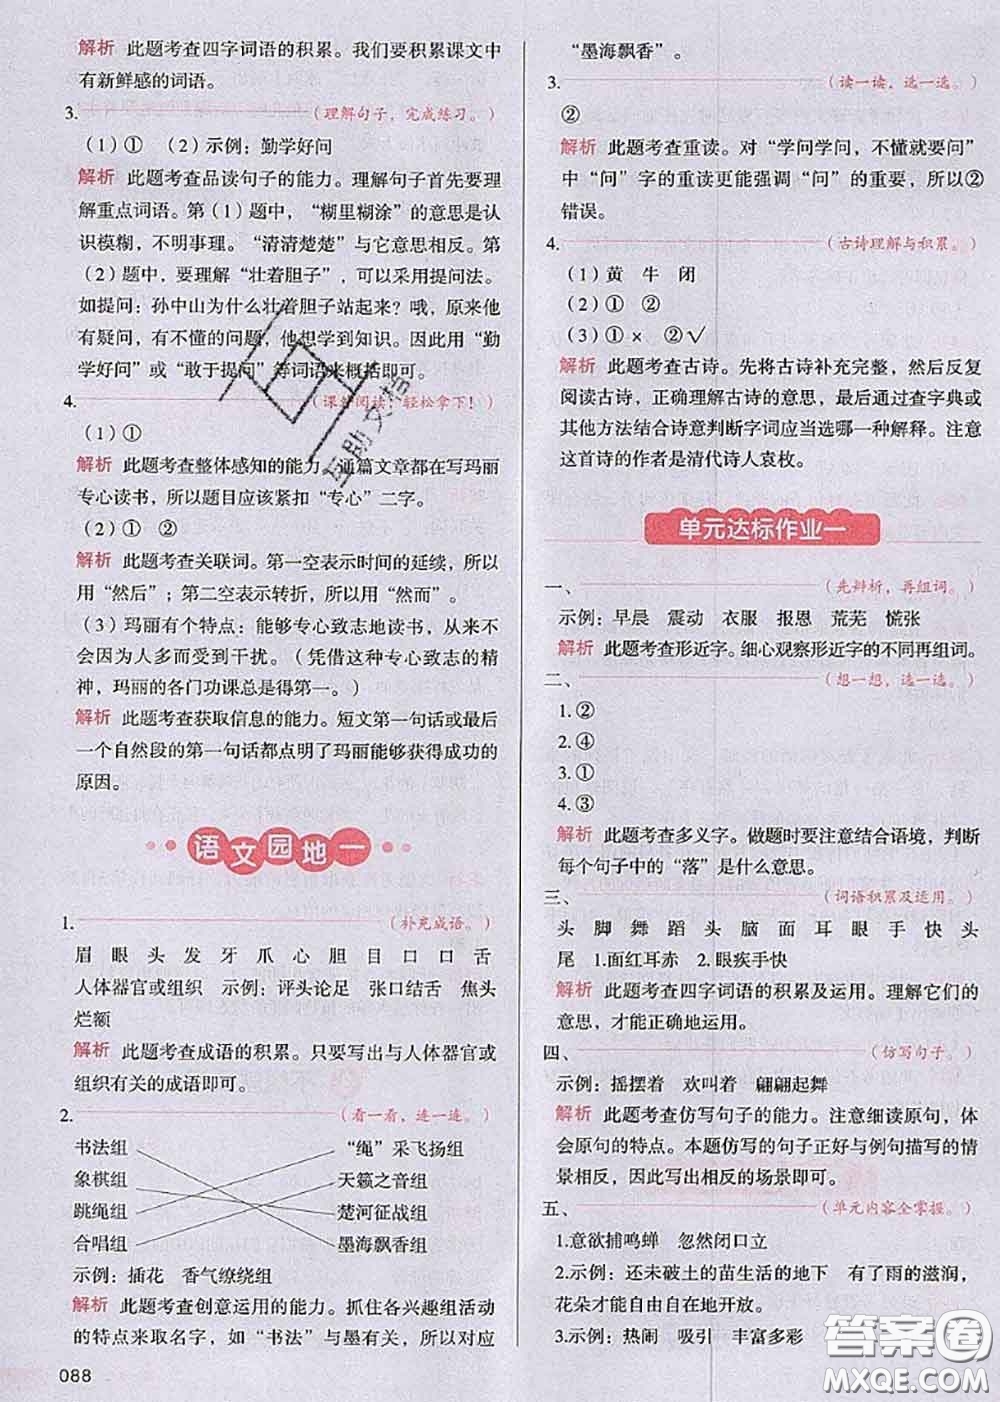 解析 此题考查四字词语的积累。我们要积累课文中
有新鲜感的词语。
3.（理解句子，完成练习。）
（1）① （2）示例：勤学好问
解析 此题考查品读句子的能力。理解句子首先要理
解重点词语。第（1）题中，“糊里糊涂”的意思是认
识模糊，不明事理。“清清楚楚”与它意思相反。第
（2）题中，要理解“壮着胆子”，可以采用提问法。
如提问：孙中山为什么壮着胆子站起来？哦，原来他
有疑问，有不懂的问题，他想学到知识。因此用“勤
学好问”或“敢于提问”等词语来概括即可。
4.（课外阅读，轻松拿下！）
（1）①
解析 此题考查整体感知的能力。通篇文章都在写玛丽
专心读书，所以题目应该紧扣“专心”二字。
（2）① ②
解析 此题考查关联词。第一空表示时间的延续，所
以用“然后”；第二空表示转折，所以用“然而”。
（3）玛丽有个特点：能够专心致志地读书，从来不
会因为人多而受到干扰。（凭借这种专心致志的精
神，玛丽的各门功课总是得第一。）
解析 此题考查获取信息的能力。短文第一句话或最后
一个自然段的第一句话都点明了玛丽能够获得成功的
原因。
语文园地一
1.（补充成语。）
眉 眼 头 发 牙 爪 心 胆 目 口 口 舌
人体器官或组织 示例：评头论足 张口结舌 焦头
烂额
解析 此题考查成语的积累。只要写出与人体器官或
组织有关的成语即可。
2.（看一看，连一连。）
书法组 “绳”采飞扬组
象棋组 天籁之音组
跳绳组 楚河征战组
合唱组 墨海飘香组
示例：插花 香气缭绕组
解析 此题考查创意运用的能力。抓住各兴趣组活动
的特点来取名字，如“书法”与墨有关，所以对应
088
“墨海飘香”。
3.（读一读，选一选。）
②
解析 此题考查重读。对“学问学问，不懂就要问”
中“问”字的重读更能强调“问”的重要，所以②
错误。
4.（古诗理解与积累。）
（1）黄 牛 闭
（2）① ②
（3）①× ②√
解析 此题考查古诗。先将古诗补充完整，然后反复
阅读古诗，正确理解古诗的意思，最后通过查字典或
其他方法结合诗意判断字词应当选哪一种解释。注意
这首诗的作者是清代诗人袁枚。
单元达标作业一
一、（先辩析，再组词。）
示例：早晨 震动 衣服 报恩 荒芜 慌张
解析 此题考查形近字。细心观察形近字的不同再组词。
二、（想一想，选一选。）
1.②
2.④
3.①
4.③
解析 此题考查多义字。做题时要注意结合语境，判断
每个句子中的“落”是什么意思。
三、（词语积累及运用。）
头 脚 舞 蹈 头 脑 面 耳 眼 手 快 头
尾 1.面红耳赤 2.眼疾手快
解析 此题考查四字词语的积累及运用。理解它们的
意思，才能正确地运用。
四、（仿写句子。）
示例：摇摆着 欢叫着 翩翩起舞
解析 此题考查仿写句子的能力。注意细读原句，体
会原句的特点。本题仿写的句子正好与例句描写的情
景相反，因此写出相反的场景即可。
五、（单元内容全掌握。）
1.意欲捕鸣蝉 忽然闭口立
2.示例：还未破土的苗生活的地下 有了雨的滋润，
花朵才能自由自在地开放。
3.示例：热闹 吸引 丰富多彩
答案圈
MXQE.COM